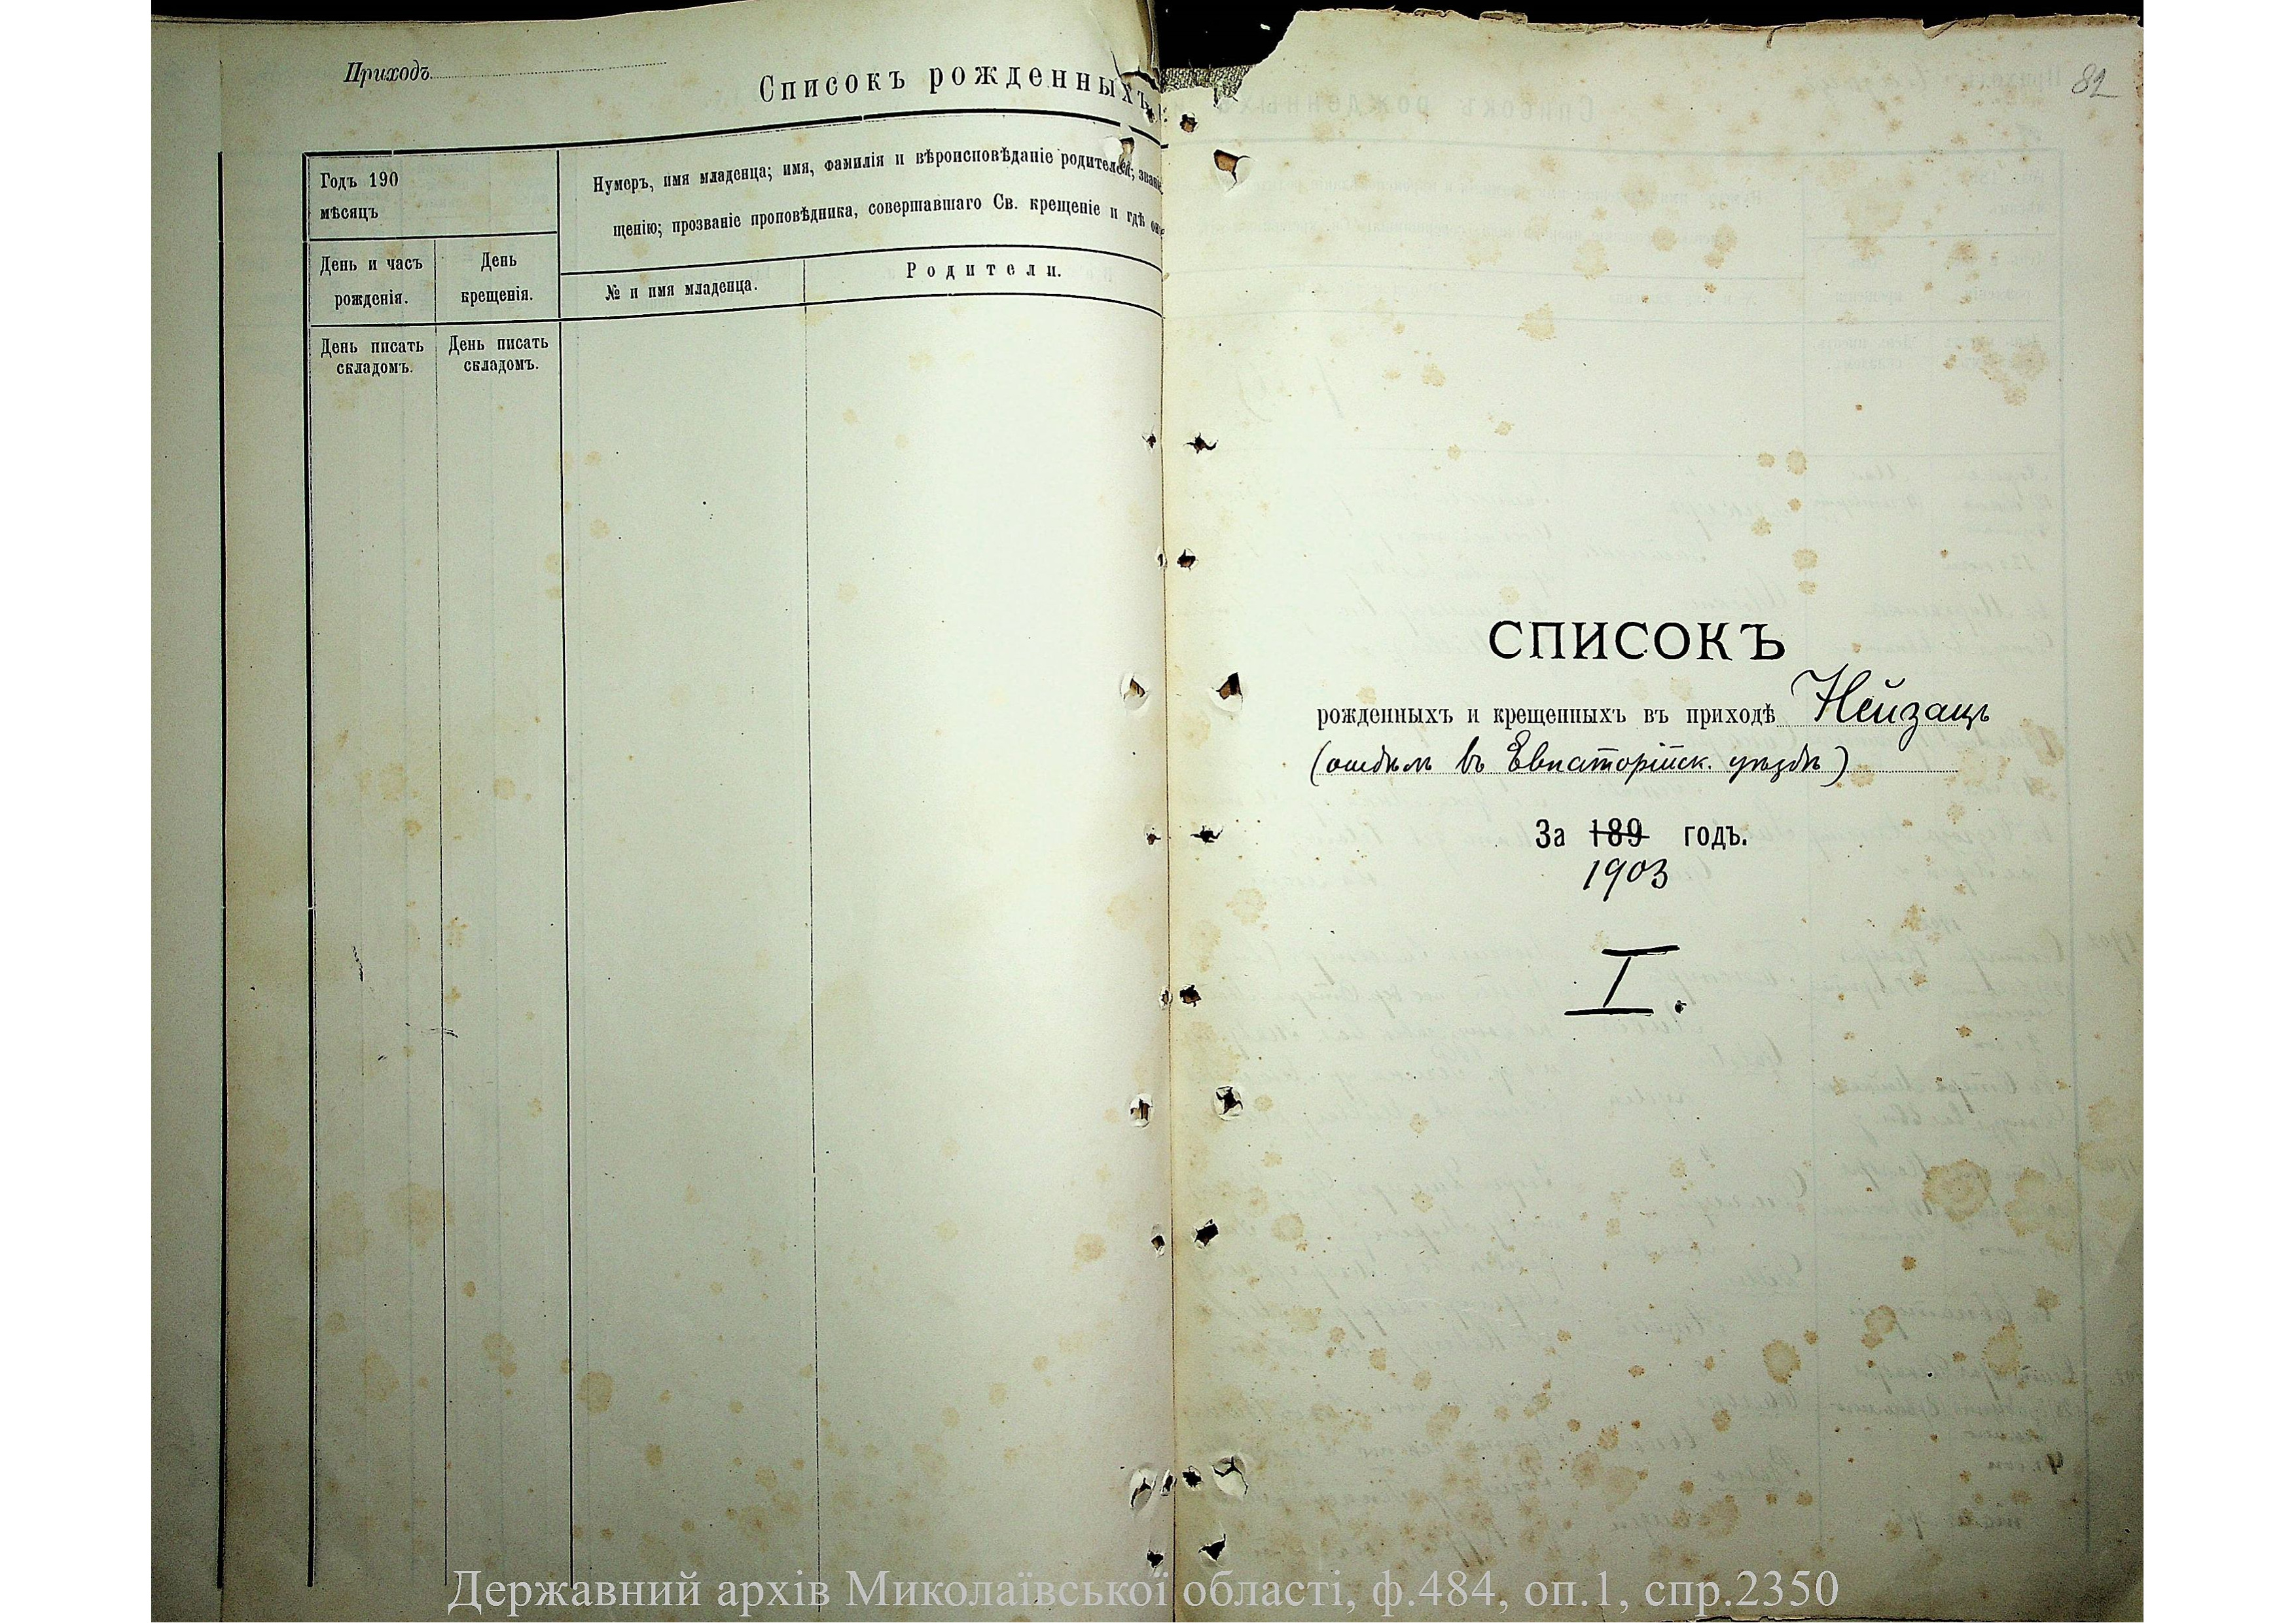 Приходъ
Списокъ рожденныхъ
Годъ 190
мѣсяцъ
Нумеръ, имя младенца; имя, фамилія и вѣроисповѣданіе родителей; званіе
щенію; прозваніе проповѣдника, совершавшаго Св. крещеніе и гдѣ
День и часъ
рожденія.
День
крещенія.
№ и имя младенца.
Родители.
День писать
складомъ.
День писать
складомъ.
82
СПИСОКЪ
рожденныхъ и крещенныхъ въ приходѣ Нейзацъ
(отдѣлъ въ Евпаторійск. уѣздѣ)
За 189 годъ.
1903
I.
Державний архів Миколаївської області, ф.484, оп.1, спр.2350